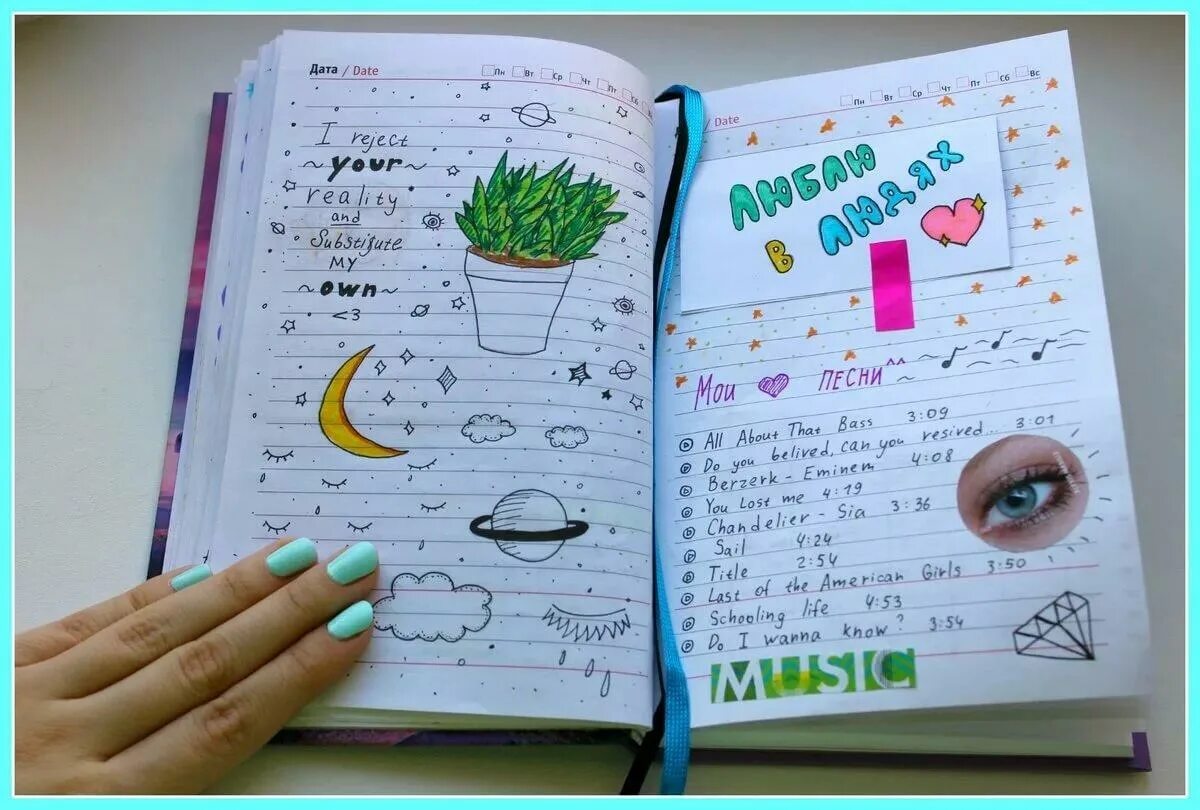 Дата / Date
Пн Вт Ср Чт Пт Сб
I reject
~your~
reality
and
Substitute
MY
~own~
<3
/ Date
Пн Вт Ср Чт Пт Сб Вс
ЛЮБЛЮ
В ЛЮДЯХ
Мои ПЕСНИ ^^
All About That Bass 3:09
Do you belived, can you resived... 3:01
Berzerk - Eminem 4:08
You Lost me 4:19
Chandelier - Sia 3:36
Sail 4:24
Title 2:54
Last of the American Girls 3:50
Schooling life 4:53
Do I wanna know? 3:54
MUSIC